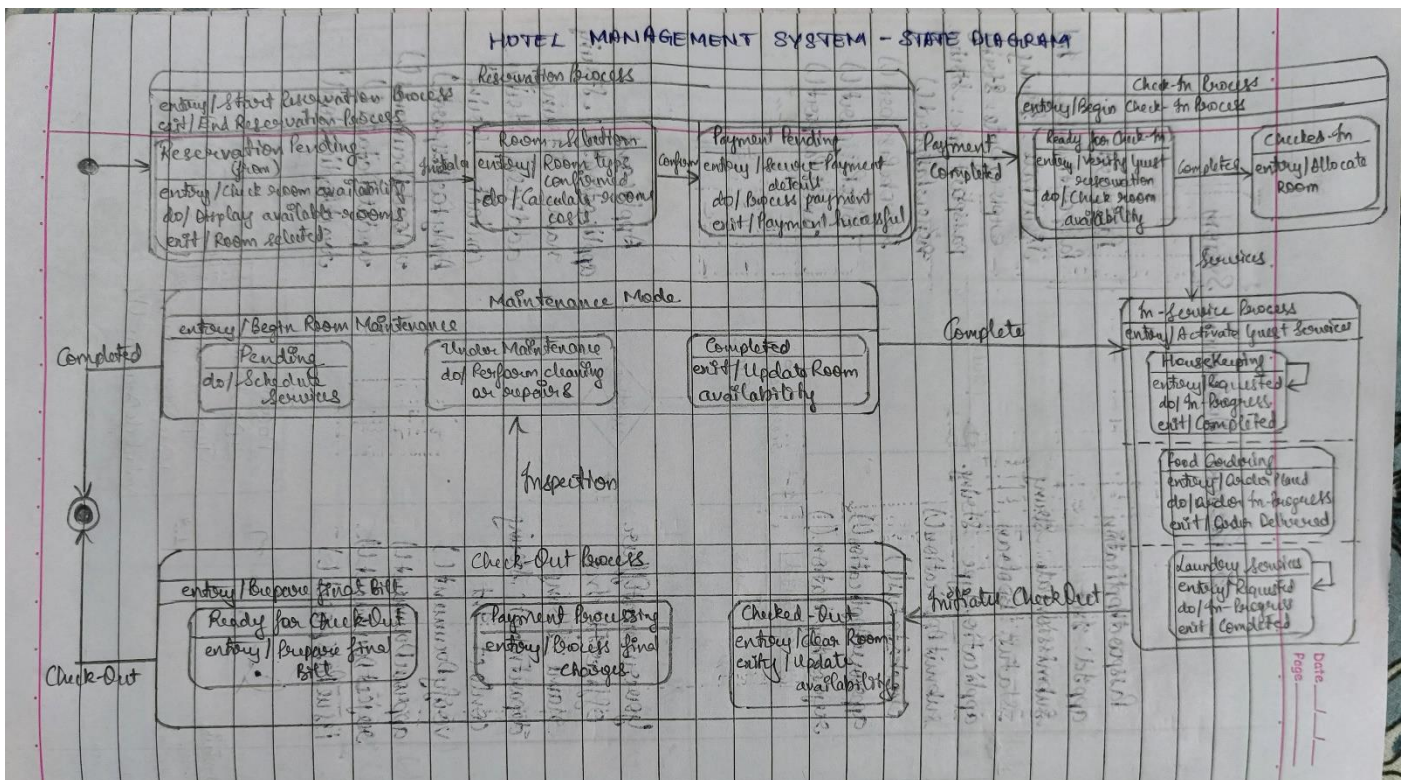 HOTEL MANAGEMENT SYSTEM - STATE DIAGRAM
Reservation Process
entry/Start Reservation Process
exit/End Reservation Process
Reservation Pending
entry/Check room availability
do/Display available rooms
exit/Room selected
Room Selection
entry/Room type
confirmed
do/Calculate room
costs
Confirm
Payment Pending
entry/Secure Payment
details
do/Process payment
exit/Payment successful
Payment
Completed
Check-In Process
entry/Begin Check-In Process
Ready for Check-In
entry/Verify guest
reservation
do/Check room
availability
Completed
entry/Allocate
Room
Services
Maintenance Mode
entry/Begin Room Maintenance
Pending
do/Schedule
Services
Under Maintenance
do/Perform cleaning
or repairs
Completed
exit/Update Room
availability
Complete
In-Service Process
entry/Activate Guest Services
Housekeeping
entry/Requested
do/In-Progress
exit/Completed
Food Oordering
entry/Order Placed
do/Order In-Progress
exit/Order Delivered
Laundry Services
entry/Requested
do/In-Progress
exit/Completed
Completed
Inspection
Check-Out Process
entry/Prepare final Bill
Ready for Check-Out
entry/Prepare final
Bill
Payment Processing
entry/Process final
Charges
Checked-Out
entry/Clear Room
/Update
availability
CheckOut
Check-Out
Date
Page